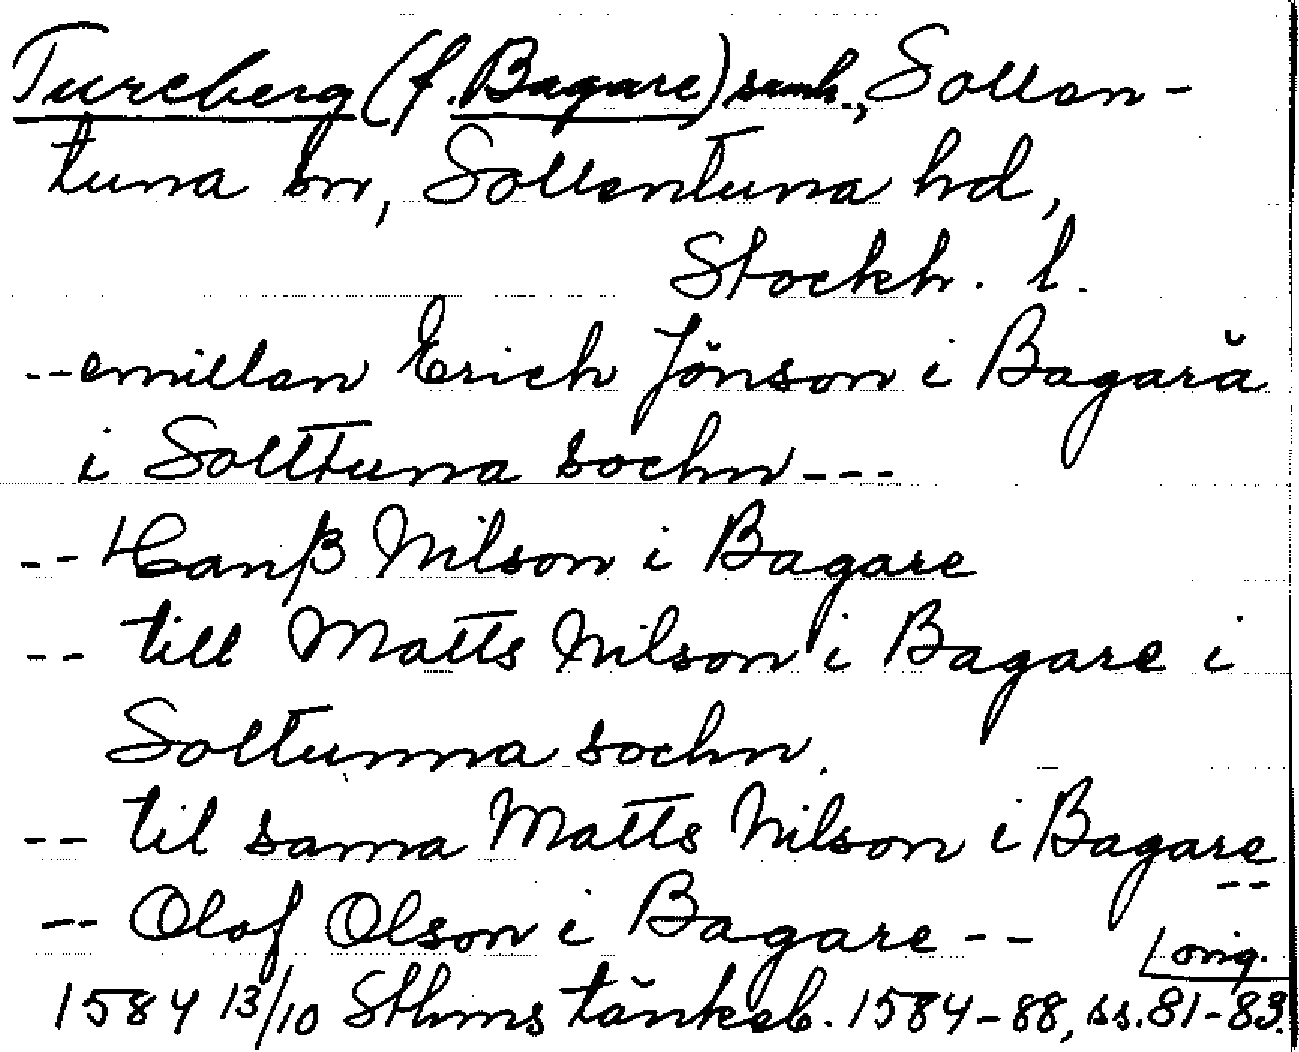 Tureberg (f. Bagare) samh., Sollen-
tuna sn, Sollentuna hd,
Stockh. l.
--emillan Erich Jönson i Bagarä
i Solltuna sochn---
-- Hanß Nilson i Bagare
-- till Matts Nilson i Bagare i
Soltunna sochn.
-- til sama Matts Nilson i Bagare
--
-- Olof Olson i Bagare --
orig.
1584 13/10 Sthms tänkeb. 1584-88, ss. 81-83.